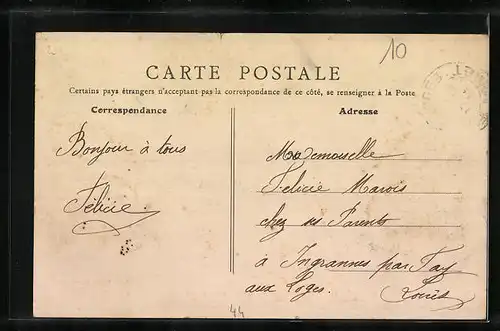 10
CARTE POSTALE
Certains pays étrangers n'acceptant pas la correspondance de ce côté, se renseigner à la Poste
Correspondance
Bonjour à tous
Félicie.
Adresse
Mademoiselle
Felicie Marois
chez ses Parents
à Ingrannes par Fay
aux Loges. Loiret
44